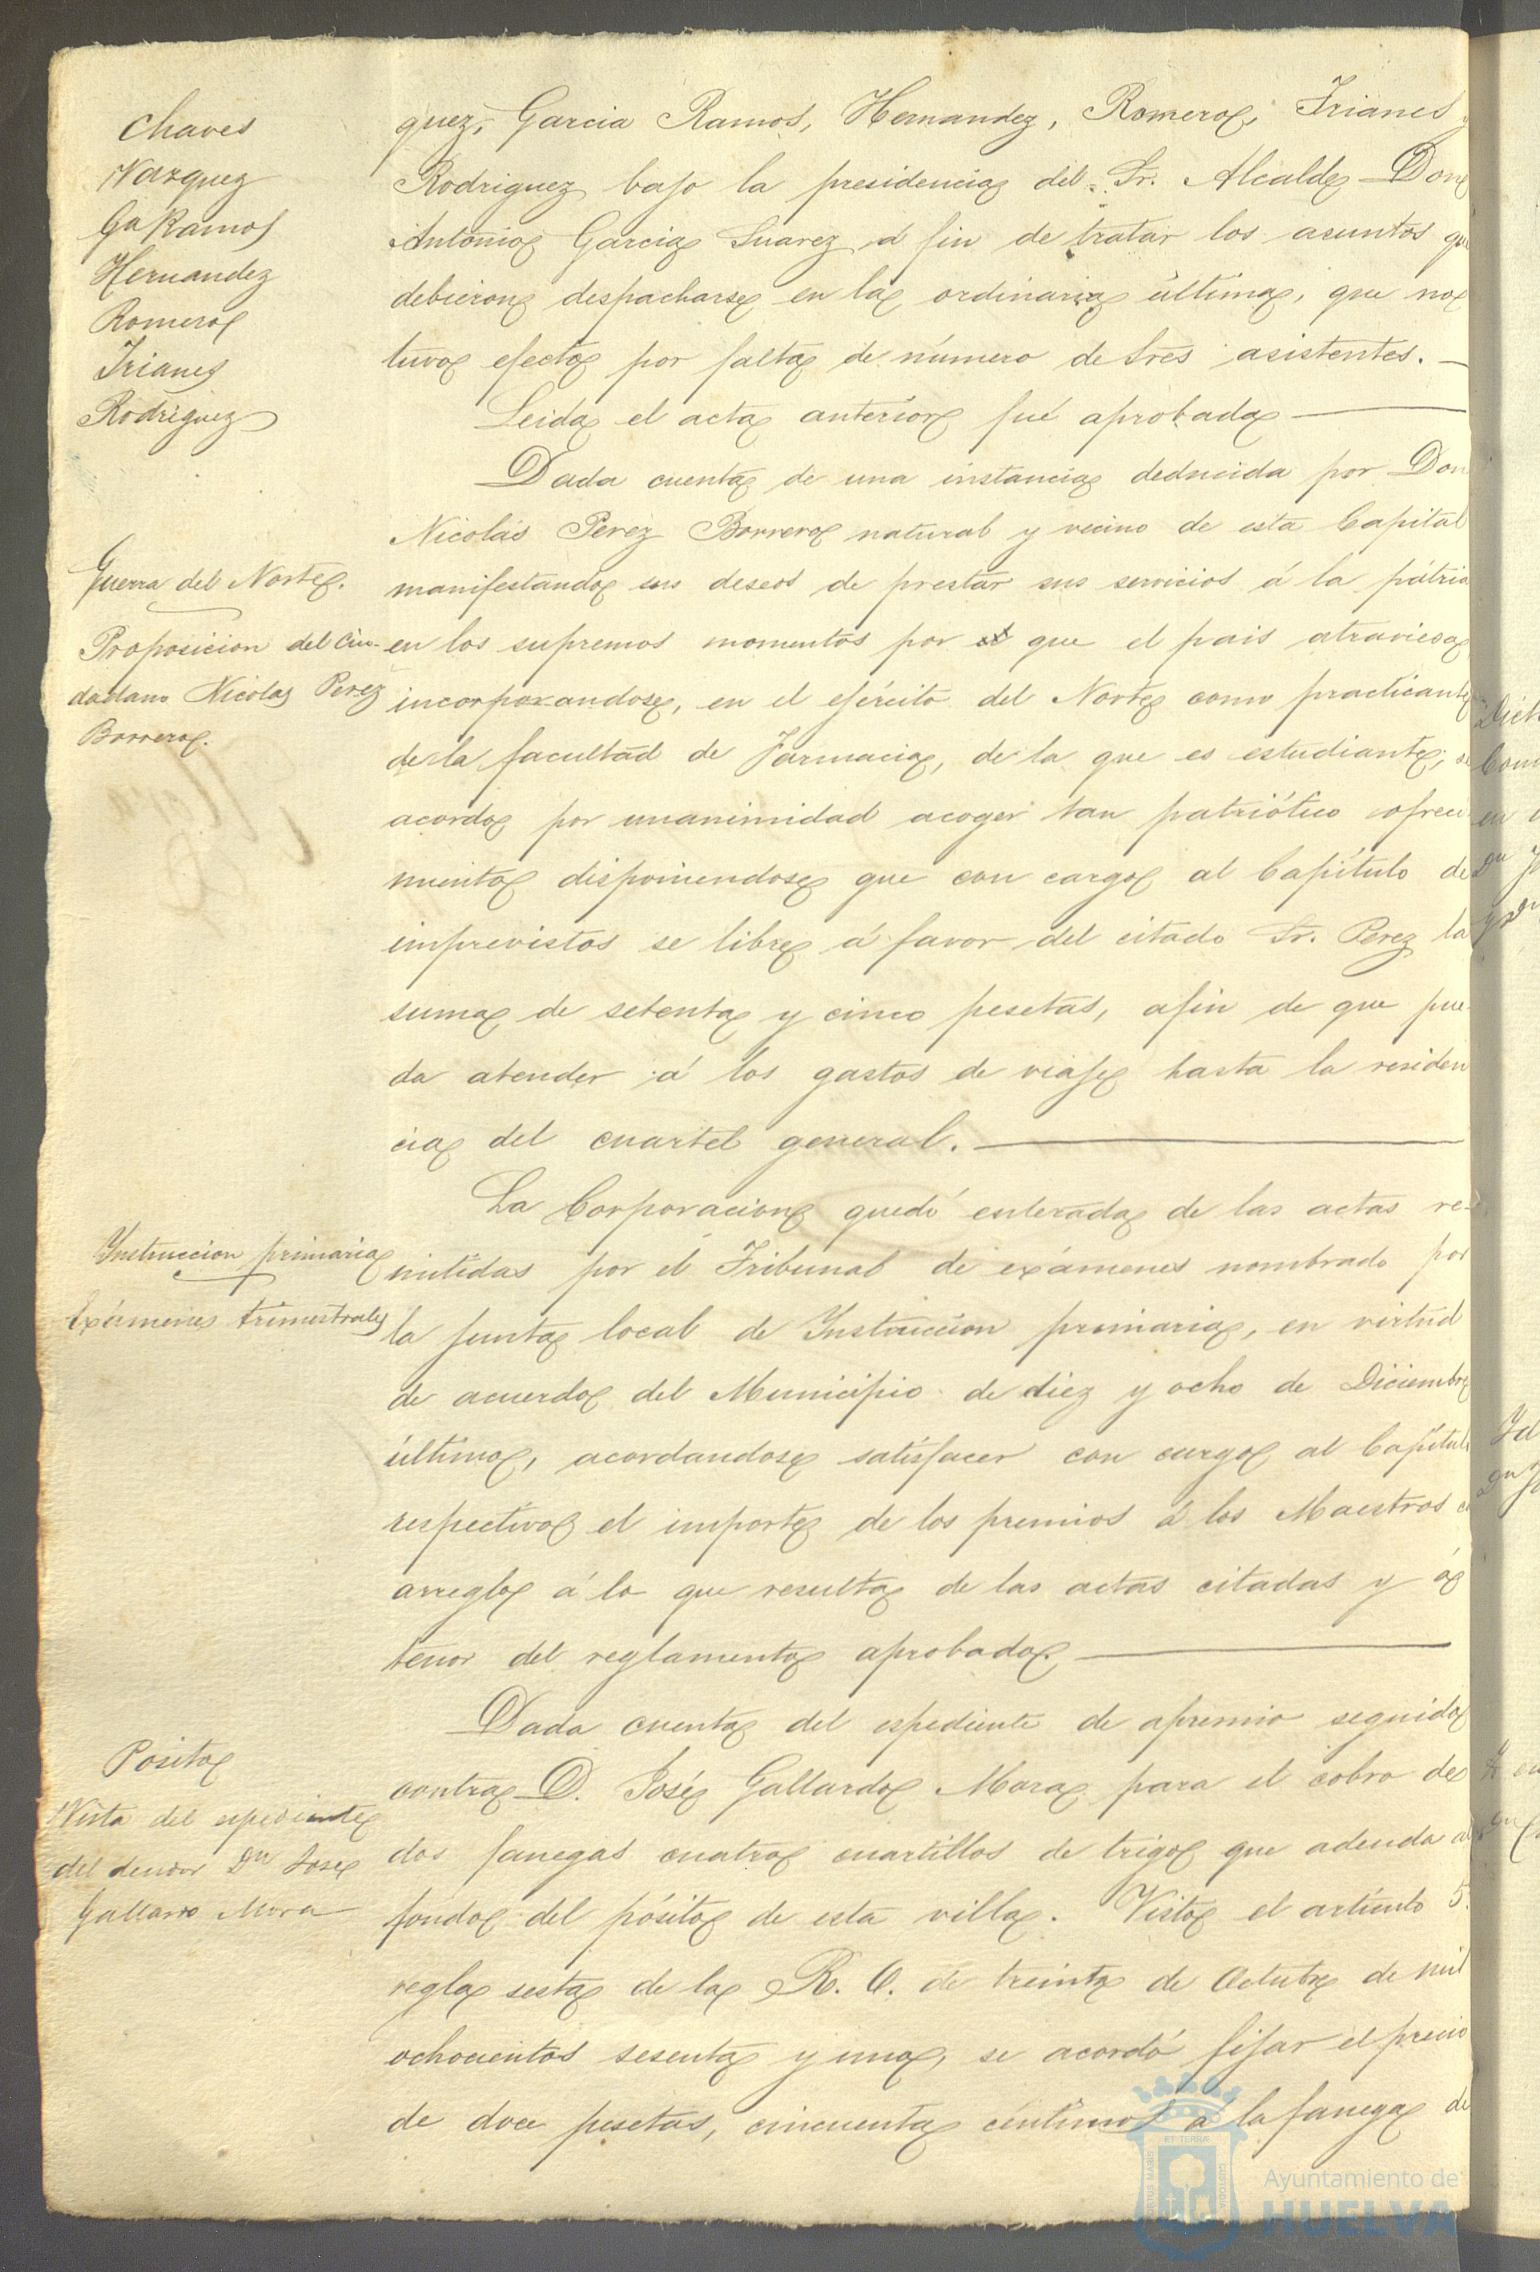 Chaves
Vazquez
Ga Ramos
Hernandez
Romero
Trianes
Rodriguez
quez, Garcia Ramos, Hernandez, Romero, Trianes y
Rodriguez bajo la presidencia del Sr. Alcalde Don
Antonio Garcia Suarez á fin de tratar los asuntos que
debieron despacharse en la ordinaria última, que no
tuvo efecto por falta de número de tres asistentes.
Leida el acta anterior fué aprobada
Dada cuenta de una instancia deducida por Don
Nicolás Perez Borrero natural y vecino de esta Capital
manifestando sus deseos de prestar sus servicios á la pátria
en los supremos momentos por que el pais atraviesa
incorporandose, en el ejército del Norte como practicante
de la facultad de Farmacia, de la que es estudiante, se
acordo por unanimidad acoger tan patriótico ofreci
miento disponiendose que con cargo al Capítulo de
imprevistos se libre á favor del citado Sr. Perez la
suma de setenta y cinco pesetas, afin de que pue
da atender á los gastos de viaje hasta la residen
cia del cuartel general.
Guerra del Norte.
Proposicion del Ciu-
dadano Nicolas Perez
Borrero.
La Corporacion quedó enterada de las actas re-
mitidas por el Tribunal de exámenes nombrado por
la junta local de Instruccion primaria, en virtud
de acuerdo del Municipio de diez y ocho de Diciembre
último, acordandose satisfacer con cargo al Capítulo
respectivo el importe de los premios á los Maestros
arreglo á lo que resulta de las actas citadas y á
tenor del reglamento aprobado.
Instruccion primaria
Exámenes trimestrales
Dada cuenta del espediente de apremio seguido
contra D. José Gallardo Mora para el cobro de
dos fanegas cuatro cuartillos de trigo que adeuda al
fondo del pósito de esta villa. Visto el artículo 5.
regla sesta de la R. O. de treinta de Octubre de mil
ochocientos sesenta y uno, se acordó fijar el precio
de doce pesetas, cincuenta céntimos á la fanega de
Posito
Vista del espediente
del deudor Dn Jose
Gallardo Mora
Ayuntamiento de
HUELVA